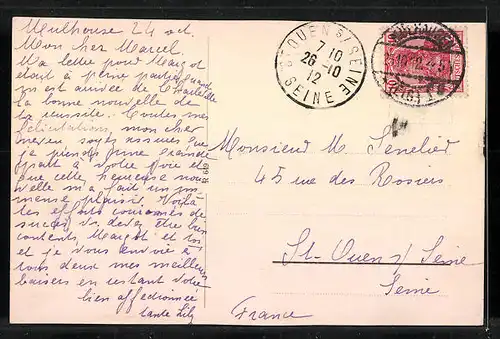 Mulhouse 24 oct.
Mon cher Marcel.
Ma lettre pour Margot
était à peine partie quand
m'est arrivée de
la bonne nouvelle de
ta réussite. Toutes mes
félicitations, mon cher
neveu soyez assurés que
je prends une grande
part à votre joie et
que cette heureuse nou
velle m'a fait un im
mense plaisir. Voilà
tes efforts couronnés de
succès vs. devez être bien
contents Margot et toi
et je vous envoie à
tous deux mes meilleurs
baisers en restant votre
bien affectionnée
tante Lily
ST OUEN S/ SEINE
7 10
26 -10
12
SEINE
Monsieur M. Senelier
45 rue des Rosiers
St-Ouen s/ Seine
Seine
France